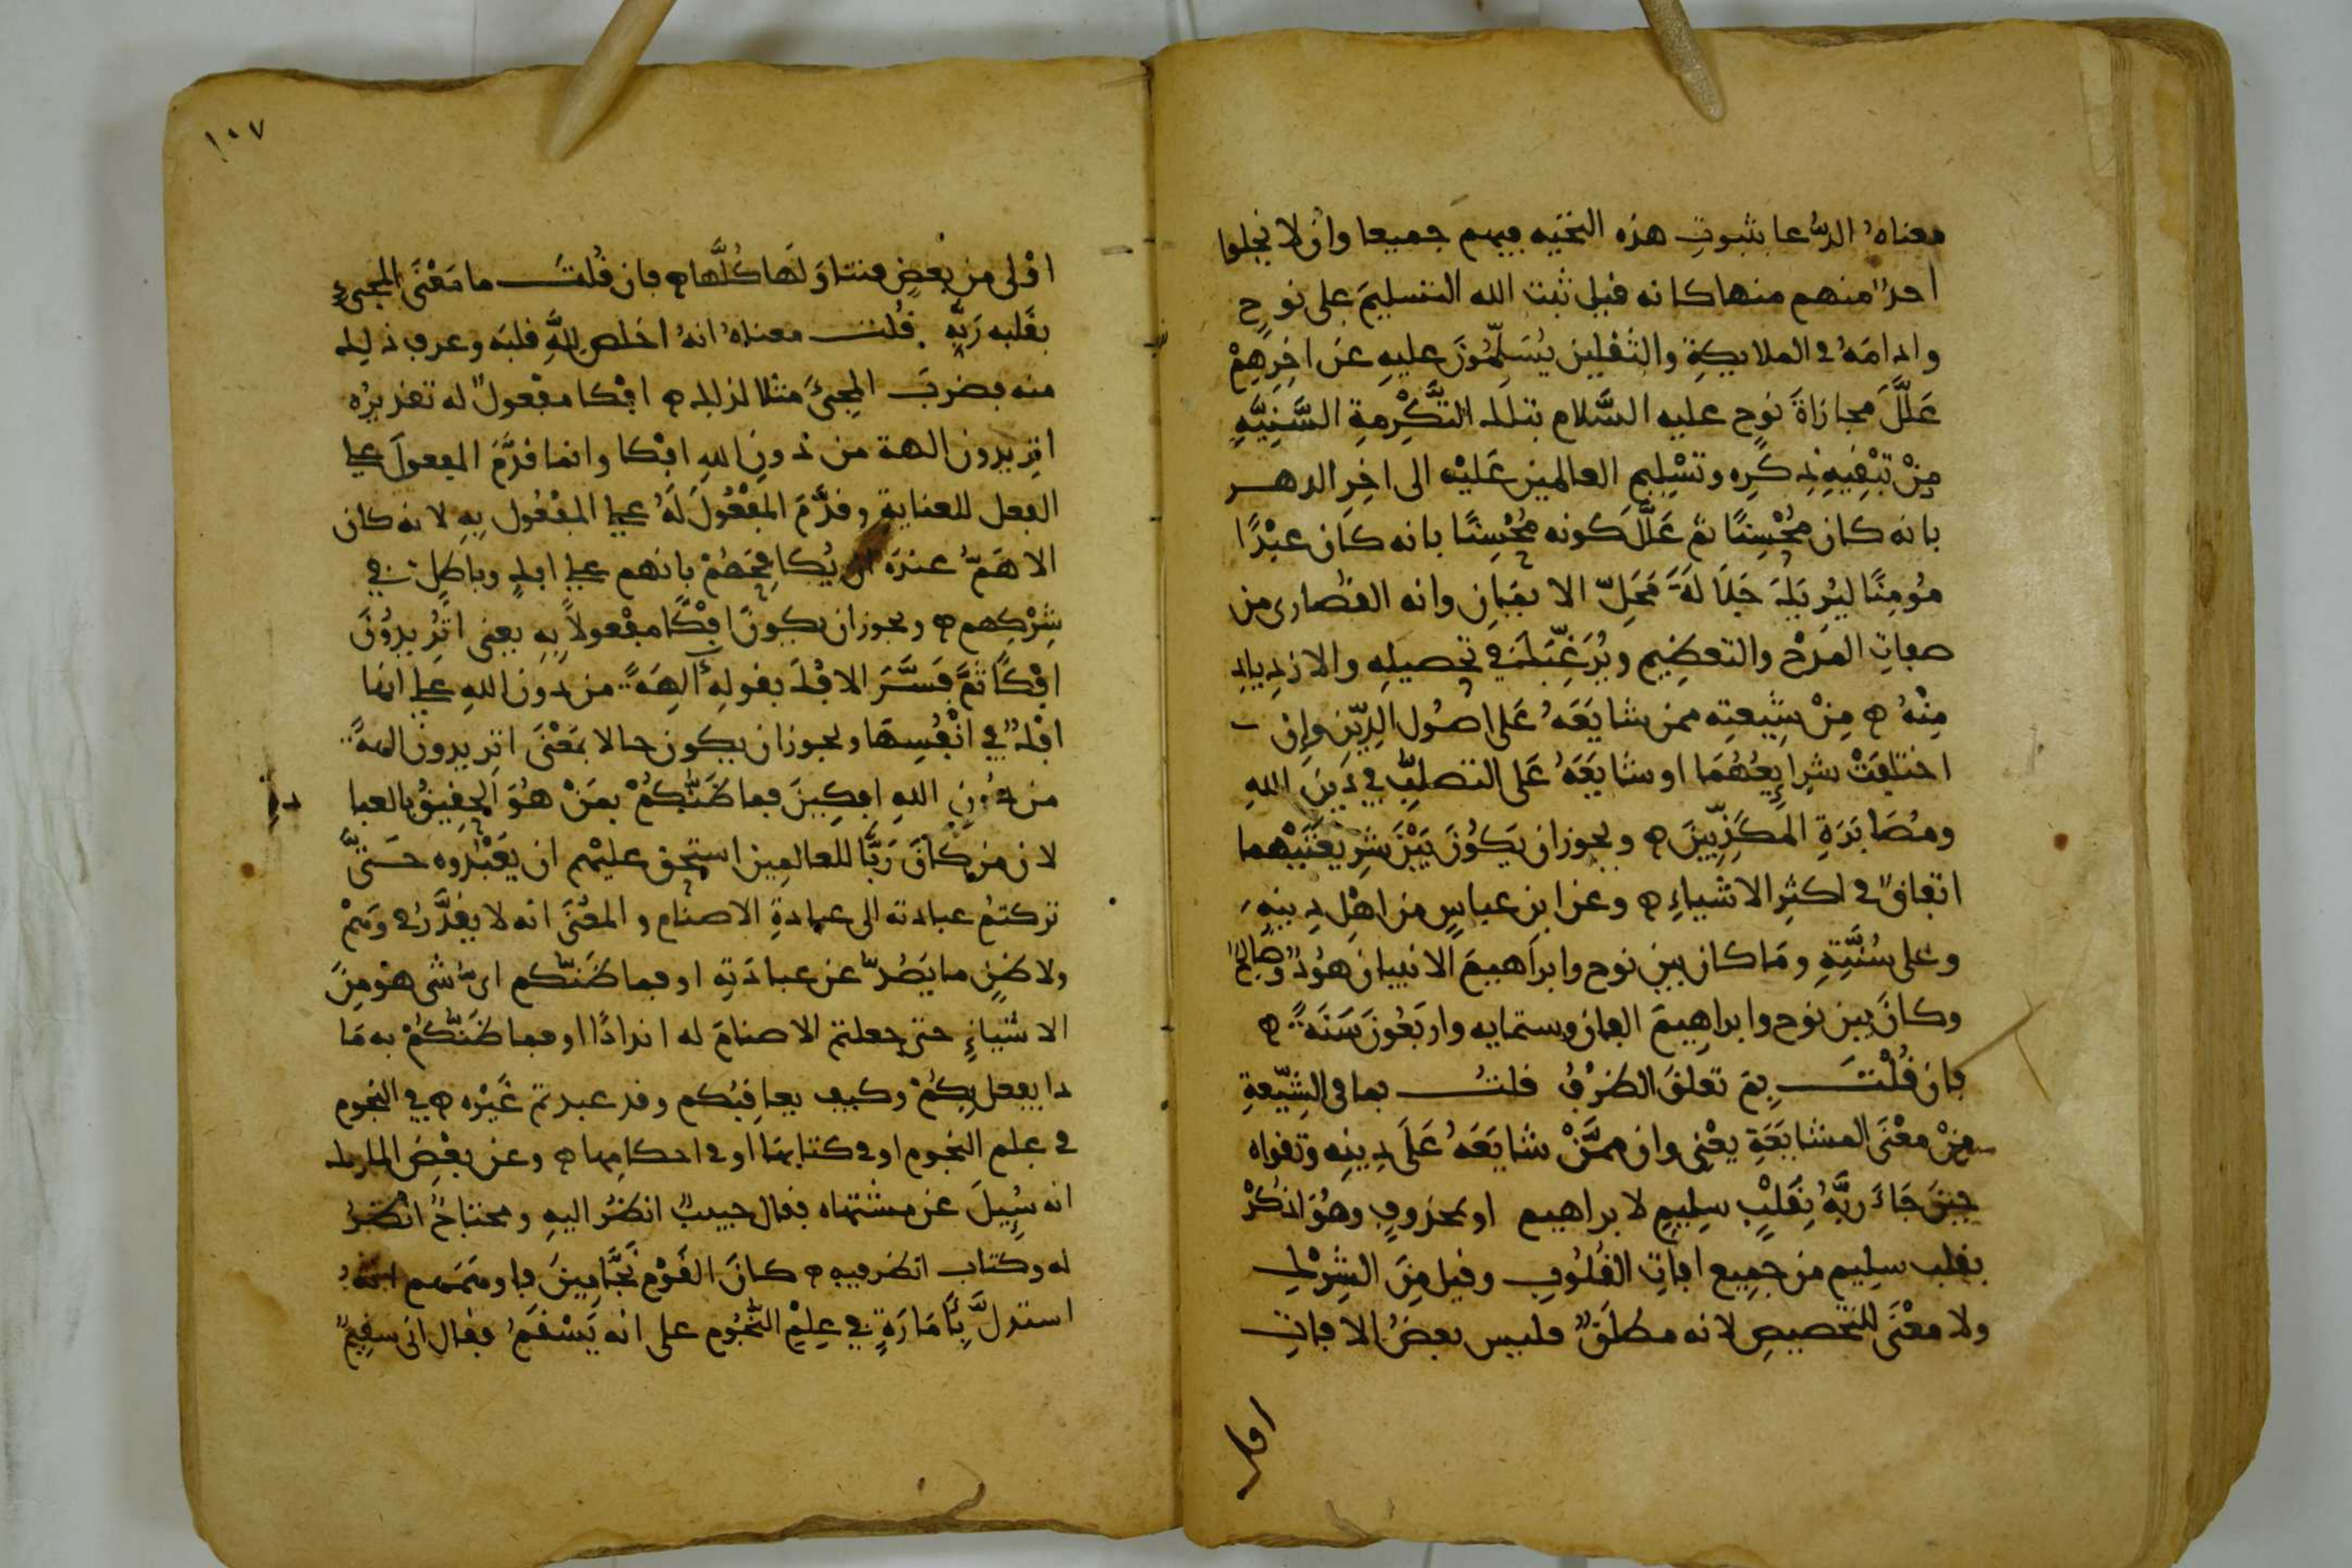 معناه الدعا بثبوت هذه التحيه فيهم جميعا وان لا يخلوا
احد منهم منها كانه قيل ثبت الله التسليم على نوح
وادامه في الملايكة والثقلين يسلمون عليه عن اخرهم
علل مجازاة نوح عليه السلام بتلك التكرمة السنيه
من تبقيه ذكره وتسليم العالمين عليه الى اخر الدهر
بانه كان محسنا ثم علل كونه محسنا بانه كان عبدا
مومنا ليريك جلالة محل الايمان وانه القصارى من
صفات المدح والتعظيم ويرغبك في تحصيله والازدياد
منه ه من شيعته ممن شايعه على اصول الدين وان
اختلفت شرايعهما او شايعه على التصلب في دين الله
ومصابرة المكذبين ه ويجوز ان يكون بين شريعتيهما
اتفاق في اكثر الاشياء ه وعن ابن عباس من اهل دينه
وعلى سنته وما كان بين نوح وابراهيم الا نبيان هود وصالح
وكان بين نوح وابراهيم الفان وستمايه واربعون سنة ه
فان قلت بم تعلق الظرف قلت بما في الشيعة
من معنى المشايعة يعني وان ممن شايعه على دينه وتقواه
حين جاء ربه بقلب سليم لابراهيم او بمحذوف وهو اذكر
بقلب سليم من جميع افات القلوب وقيل من الشرك
ولا معنى للتخصيص لانه مطلق فليس بعض الافات
اولى
١٠٧
اولى من بعض فتتاولها كلها ه فان قلت ما معنى المجيء
بقلبه ربه قلت معناه انه اخلص لله قلبه وعرف ذلك
منه فضرب المجيء مثلا لذلك ه افكا مفعول له تقديره
اتريدون الهة من دون الله افكا وانما قدم المفعول على
الفعل للعناية وقدم المفعول له على المفعول به لانه كان
الاهم عنده ان يكافحهم بانهم على افك وباطل في
شركهم ه ويجوز ان يكون افكا مفعولا به يعني اتريدون
افكا ثم فسر الافك بقوله آلهة من دون الله على انها
افك في انفسها ويجوز ان يكون حالا بمعنى اتريدون الهة
من دون الله افكين فما ظنكم بمن هو الحقيق بالعبا
دة
لان من كان ربا للعالمين استحق عليهم ان يعبدوه حتى
تركتم عبادته الى عبادة الاصنام والمعنى انه لا يقدر في وهم
ولا ظن ما يصد عن عبادته او فما ظنكم اي شي هو من
الاشياء حتى جعلتم الاصنام له اندادا او فما ظنكم به ما
ذا يفعل بكم وكيف يعاقبكم وقد عبدتم غيره ه في النجوم
في علم النجوم او في كتابها او في احكامها ه وعن بعض الملوك
انه سيل عن مشتهاه فقال حبيب انظر اليه ومحتاج انظر
له وكتاب انظر فيه ه كان القوم نجامين فاوهمهم انه
استدل بأمارة في علم النجوم على انه يسقم فقال اني سقيم